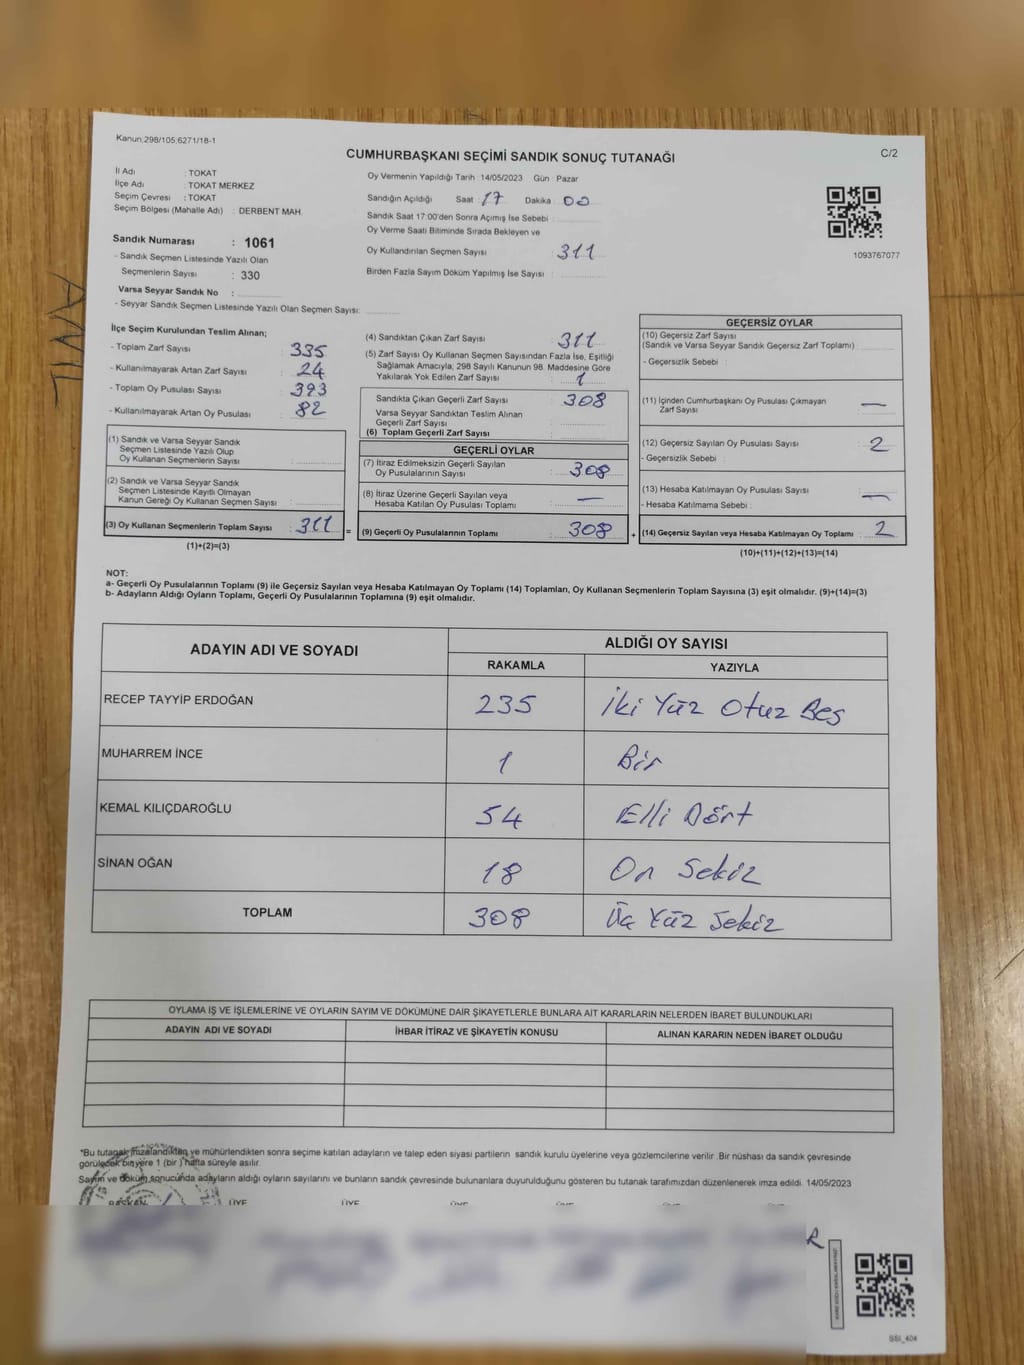 Kanun.298/105.6271/18-1
CUMHURBAŞKANI SEÇİMİ SANDIK SONUÇ TUTANAĞI
C/2
İl Adı : TOKAT
İlçe Adı : TOKAT MERKEZ
Seçim Çevresi : TOKAT
Seçim Bölgesi (Mahalle Adı) : DERBENT MAH.
Sandık Numarası : 1061
- Sandık Seçmen Listesinde Yazılı Olan
Seçmenlerin Sayısı : 330
Varsa Seyyar Sandık No :
- Seyyar Sandık Seçmen Listesinde Yazılı Olan Seçmen Sayısı:
Oy Vermenin Yapıldığı Tarih :14/05/2023 Gün Pazar
Sandığın Açıldığı Saat : 17 Dakika : 00
Sandık Saat 17:00'den Sonra Açımış İse Sebebi :
Oy Verme Saati Bitiminde Sırada Bekleyen ve
Oy Kullandırılan Seçmen Sayısı : 311
Birden Fazla Sayım Döküm Yapılmış İse Sayısı :
1093767077
ANIL
İlçe Seçim Kurulundan Teslim Alınan;
- Toplam Zarf Sayısı : 335
- Kullanılmayarak Artan Zarf Sayısı : 24
- Toplam Oy Pusulası Sayısı : 393
- Kullanılmayarak Artan Oy Pusulası : 82
(1) Sandık ve Varsa Seyyar Sandık
Seçmen Listesinde Yazılı Olup
Oy Kullanan Seçmenlerin Sayısı :
(2) Sandık ve Varsa Seyyar Sandık
Seçmen Listesinde Kayıtlı Olmayan
Kanun Gereği Oy Kullanan Seçmen Sayısı :
(3) Oy Kullanan Seçmenlerin Toplam Sayısı : 311 =
(1)+(2)=(3)
(4) Sandıktan Çıkan Zarf Sayısı : 311
(5) Zarf Sayısı Oy Kullanan Seçmen Sayısından Fazla İse, Eşitliği
Sağlamak Amacıyla, 298 Sayılı Kanunun 98. Maddesine Göre
Yakılarak Yok Edilen Zarf Sayısı : 1
Sandıkta Çıkan Geçerli Zarf Sayısı : 308
Varsa Seyyar Sandıktan Teslim Alınan
Geçerli Zarf Sayısı :
(6) Toplam Geçerli Zarf Sayısı :
GEÇERLİ OYLAR
(7) İtiraz Edilmeksizin Geçerli Sayılan
Oy Pusulalarının Sayısı : 308
(8) İtiraz Üzerine Geçerli Sayılan veya
Hesaba Katılan Oy Pusulası Toplamı : —
(9) Geçerli Oy Pusulalarının Toplamı : 308 +
GEÇERSİZ OYLAR
(10) Geçersiz Zarf Sayısı
(Sandık ve Varsa Seyyar Sandık Geçersiz Zarf Toplamı) :
- Geçersizlik Sebebi :
(11) İçinden Cumhurbaşkanı Oy Pusulası Çıkmayan
Zarf Sayısı : —
(12) Geçersiz Sayılan Oy Pusulası Sayısı : 2
- Geçersizlik Sebebi :
(13) Hesaba Katılmayan Oy Pusulası Sayısı : —
- Hesaba Katılmama Sebebi :
(14) Geçersiz Sayılan veya Hesaba Katılmayan Oy Toplamı : 2
(10)+(11)+(12)+(13)=(14)
NOT:
a- Geçerli Oy Pusulalarının Toplamı (9) ile Geçersiz Sayılan veya Hesaba Katılmayan Oy Toplamı (14) Toplamları, Oy Kullanan Seçmenlerin Toplam Sayısına (3) eşit olmalıdır. (9)+(14)=(3)
b- Adayların Aldığı Oyların Toplamı, Geçerli Oy Pusulalarının Toplamına (9) eşit olmalıdır.
ADAYIN ADI VE SOYADI
ALDIĞI OY SAYISI
RAKAMLA YAZIYLA
RECEP TAYYİP ERDOĞAN 235 İki Yüz Otuz Beş
MUHARREM İNCE 1 Bir
KEMAL KILIÇDAROĞLU 54 Elli Dört
SİNAN OĞAN 18 On Sekiz
TOPLAM 308 Üç Yüz Sekiz
OYLAMA İŞ VE İŞLEMLERİNE VE OYLARIN SAYIM VE DÖKÜMÜNE DAİR ŞİKAYETLERLE BUNLARA AİT KARARLARIN NELERDEN İBARET BULUNDUKLARI
ADAYIN ADI VE SOYADI İHBAR İTİRAZ VE ŞİKAYETİN KONUSU ALINAN KARARIN NEDEN İBARET OLDUĞU
*Bu tutanak imzalandıktan ve mühürlendikten sonra seçime katılan adayların ve talep eden siyasi partilerin sandık kurulu üyelerine veya gözlemcilerine verilir .Bir nüshası da sandık çevresinde
görülecek bir yere 1 (bir ) hafta süreyle asılır.
Sayım ve döküm sonucunda adayların aldığı oyların sayılarını ve bunların sandık çevresinde bulunanlara duyurulduğunu gösteren bu tutanak tarafımızdan düzenlenerek imza edildi. 14/05/2023
BAŞKAN ÜYE ÜYE ÜYE ÜYE ÜYE
R
SSI_404